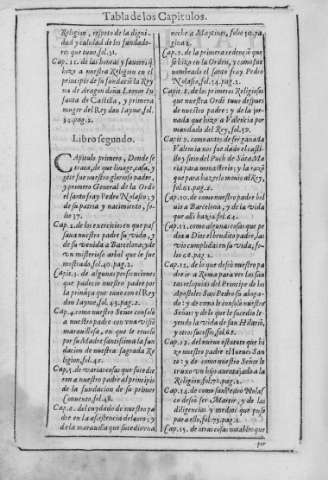 Tabla de los Capitulos.
Religion, respeto de la digni-
dad y calidad de los fundado-
res que tuvo, fol. 31.
Cap. 11. de las honras y favores q̃
hizo a nuestra Religion en el
principio de su fundaciõ la Rey
na de Aragon doña Leonor In
fanta de Castilla, y primera
muger del Rey don Iayme, fol.
34. pag. 2.
Libro segundo.
Capitulo primero, Donde se
trata, de que linage, casa, y
gẽte fue nuestro glorioso padre,
y primero General de la Ordẽ
el santo fray Pedro Nolasco; y
de su patria y nacimiento, fo-
lio 37.
Cap. 2. de los exercicios en que pas
saua nuestro padre su vida, y
de su venida a Barcelona, y de
vn misterioso arbol que le fue
mostrado, fol. 40. pag. 2.
Capit. 3. de algunas persecuciones
que padecio nuestro padre por
la priuãça que tuuo con el Rey
don Iayme, fol. 43. pag. 2.
Cap. 4. como nuestro Señor consolò
a nuestro padre con vna visiõ
marauillosa, en que le reuelò
por su Madre santissima la fun
dacion de nuestra sagrada Re
ligion, fol. 45.
Cap. 5. de varias cosas que suce die
ron a nuestro padre al principio
de la fundacion de su primer
Conuento, fol. 48.
Cap. 6. del cuydado de nuestro pa
dre en la assistencia del coro; y
de la marauilla que sucedio vna
noche a Maytines, folio 50. pa
gina 2.
Cap. 7. de la primera redencion q̃
se hizo en la Orden, y como fue
nombrado el santo fray Pedro
Nolasco, fol. 54. pag. 2.
Capit. 8. de los primeros Religiosos
que nuestra Ordẽ tuuo despues
de nuestro padre; y de la jor-
nada que hizo a Valencia por
mandado del Rey, fol. 59.
Capit. 9. como antes de ser ganada
Valencia nos fue dado el casti-
llo y sitio del Puch de Sãta Ma
ria para monasterio; y la razõ
que para hazerlo mouio al Rey,
fol. 61. pag. 2.
Cap. 10. de como nuestro padre bol
uio a Barcelona, y de la vida
que alli hazia, fol. 64.
Cap. 11. como algunas cosas que pi
dio a Dios el bendito padre, las
vio cumplidas en su vida, fo-
lio 68. pag. 2.
Cap. 12. de lo que desseò nuestro pa
dre ir a Roma para ver las san
tas reliquias del Principe de los
Apostoles San Pedro su aboga-
do; y de como le consolò nuestro
Señor; y de lo que le sucedio le
yendo la vida de San Hilariõ,
y otros sucessos, fol. 68.
Cap. 13. del nueuo assiento que hi
zo nuestro padre el Iueues San
to; y de como nuestro Señor le
truxo vn hijo auentajado a la
Religion, fol. 72. pag. 2.
Cap. 14. de como san Pedro Nolas
co desseò ser Martir, y de las
diligencias y medios que puso
para ello, fol. 75. pag. 2.
Cap. 15. de otras cosas notables que